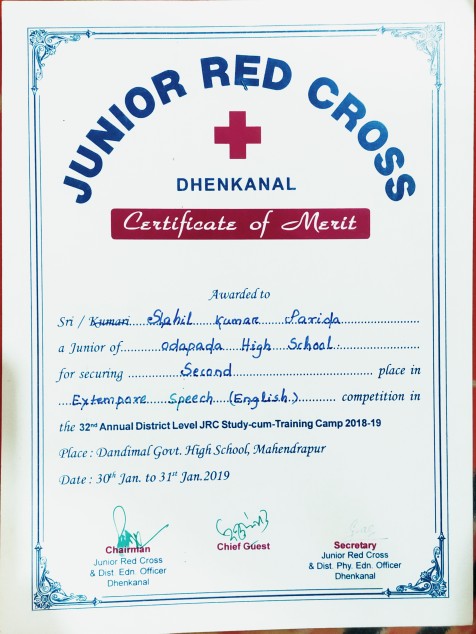 JUNIOR RED CROSS
DHENKANAL
Certificate of Merit
Awarded to
Sri / Kumari Sahil Kumar Parida
a Junior of Odapada High School
for securing Second place in
Extempore Speech (English) competition in
the 32nd Annual District Level JRC Study-cum-Training Camp 2018-19
Place : Dandimal Govt. High School, Mahendrapur
Date : 30th Jan. to 31st Jan.2019
Chairman
Junior Red Cross
& Dist. Edn. Officer
Dhenkanal
Chief Guest
Secretary
Junior Red Cross
& Dist. Phy. Edn. Officer
Dhenkanal